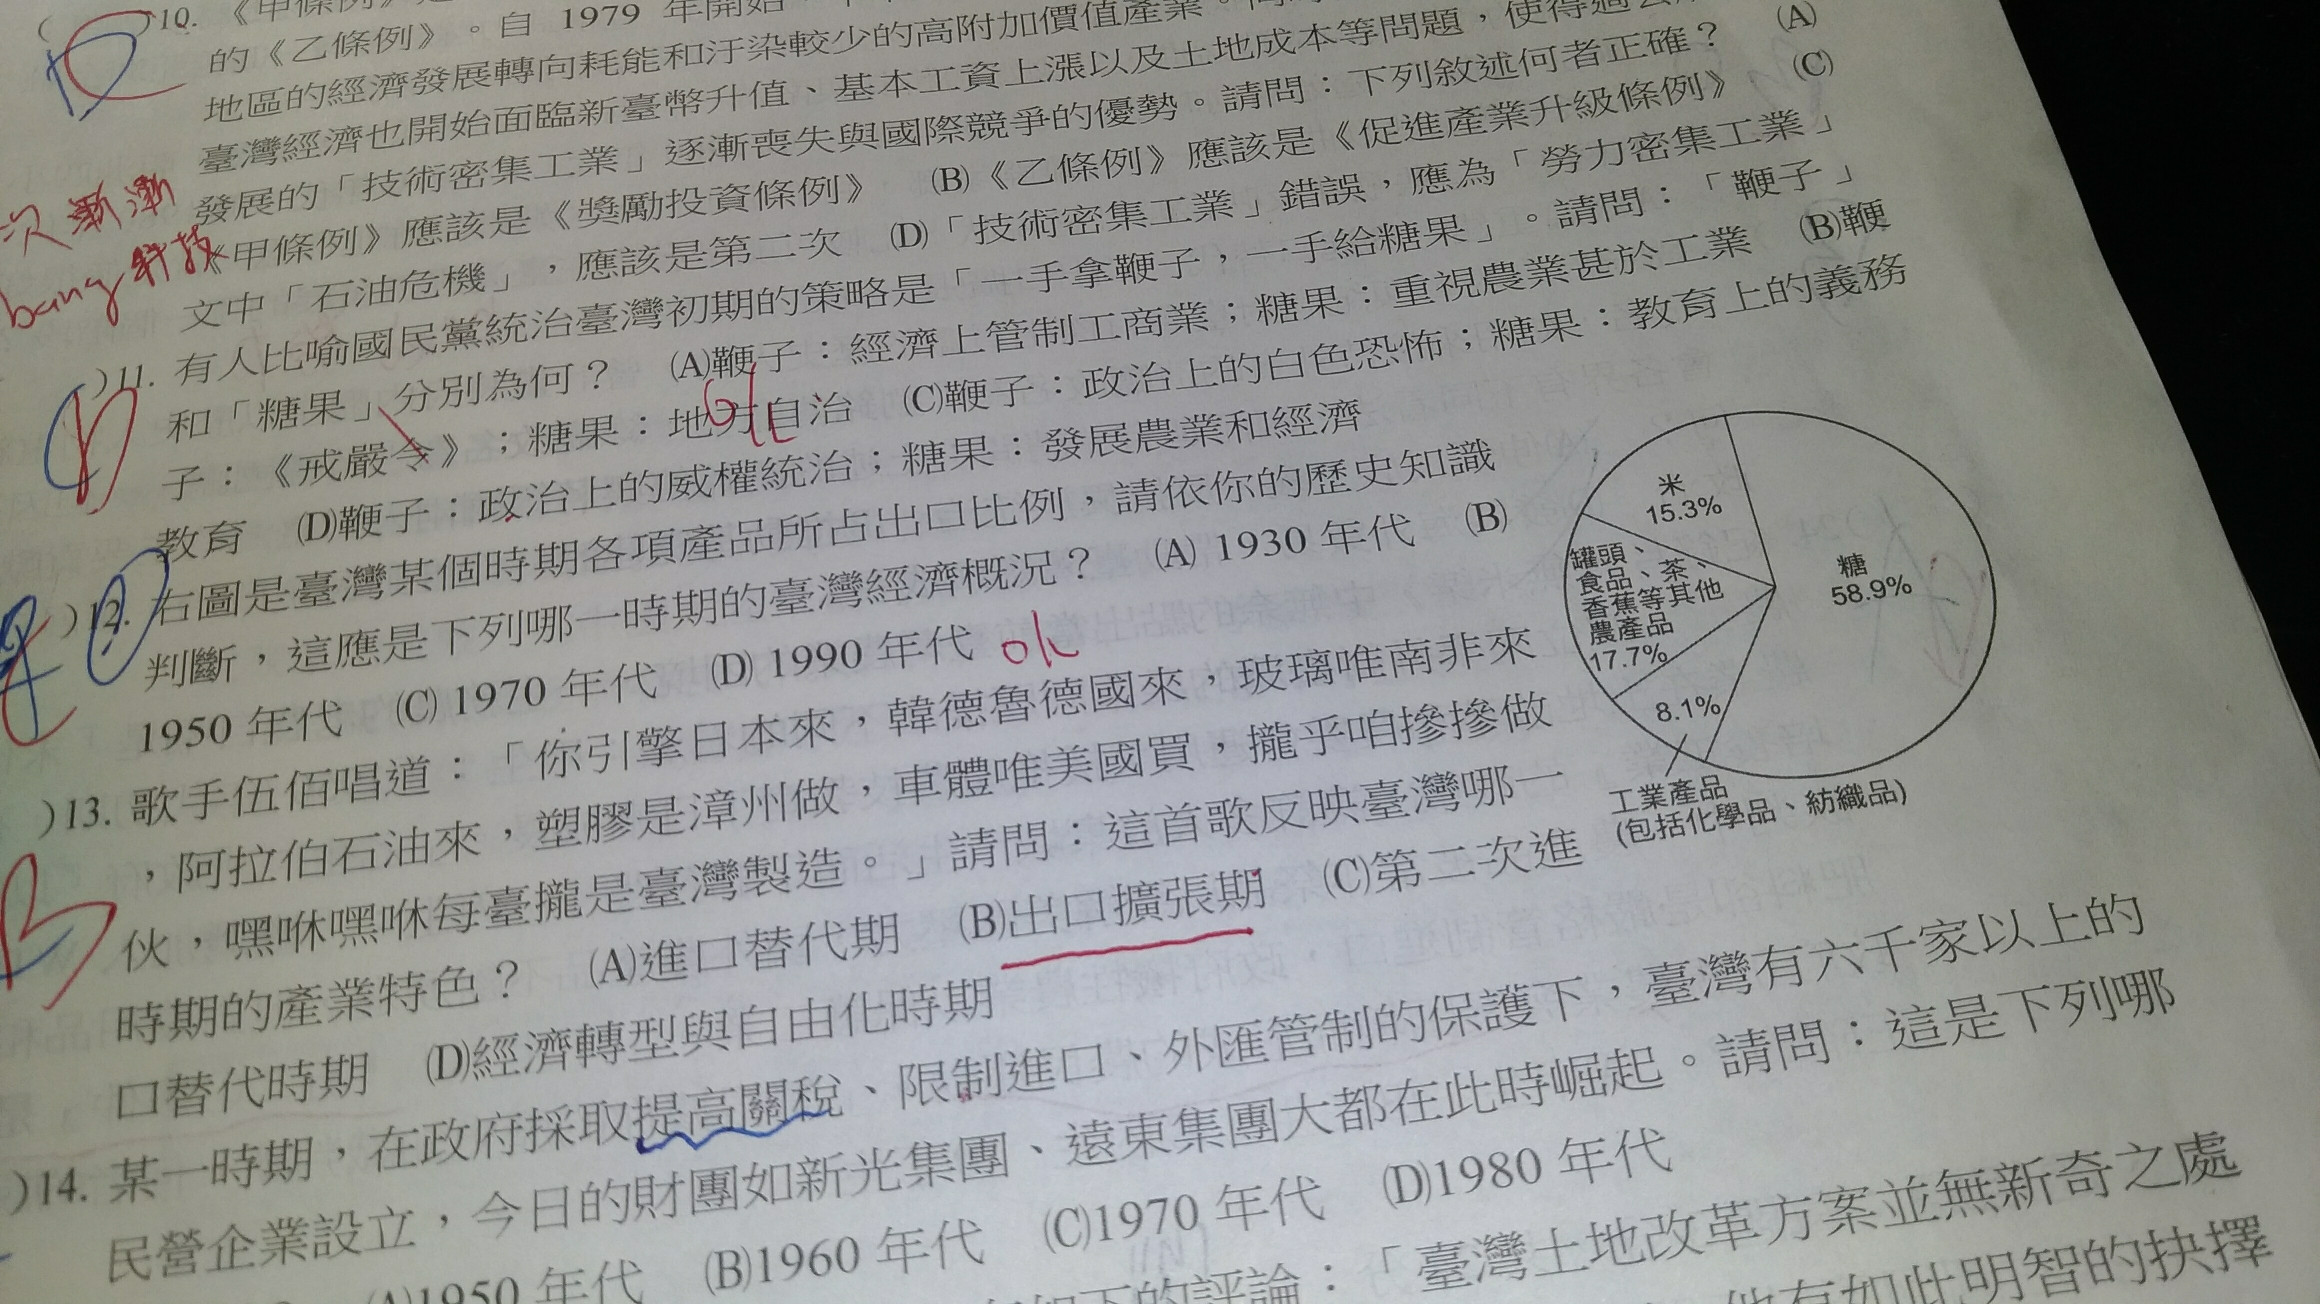 10.《甲條例》
的《乙條例》。自 1979 年開始，
地區的經濟發展轉向耗能和汙染較少的高附加價值產業。
臺灣經濟也開始面臨新臺幣升值、基本工資上漲以及土地成本等問題，使得過去
發展的「技術密集工業」逐漸喪失與國際競爭的優勢。請問：下列敘述何者正確？ (A)
《甲條例》應該是《獎勵投資條例》 (B)《乙條例》應該是《促進產業升級條例》 (C)
文中「石油危機」，應該是第二次 (D)「技術密集工業」錯誤，應為「勞力密集工業」
)11. 有人比喻國民黨統治臺灣初期的策略是「一手拿鞭子，一手給糖果」。請問：「鞭子」
和「糖果」分別為何？ (A)鞭子：經濟上管制工商業；糖果：重視農業甚於工業 (B)鞭
子：《戒嚴令》；糖果：地方自治 (C)鞭子：政治上的白色恐怖；糖果：教育上的義務
教育 (D)鞭子：政治上的威權統治；糖果：發展農業和經濟
)12. 右圖是臺灣某個時期各項產品所占出口比例，請依你的歷史知識
判斷，這應是下列哪一時期的臺灣經濟概況？ (A) 1930 年代 (B)
1950 年代 (C) 1970 年代 (D) 1990 年代
ok
米
15.3%
糖
58.9%
罐頭、
食品、茶、
香蕉等其他
農產品
17.7%
8.1%
工業產品
(包括化學品、紡織品)
)13. 歌手伍佰唱道：「你引擎日本來，韓德魯德國來，玻璃唯南非來
，阿拉伯石油來，塑膠是漳州做，車體唯美國買，攏乎咱摻摻做
伙，嘿咻嘿咻每臺攏是臺灣製造。」請問：這首歌反映臺灣哪一
時期的產業特色？ (A)進口替代期 (B)出口擴張期 (C)第二次進
口替代時期 (D)經濟轉型與自由化時期
)14. 某一時期，在政府採取提高關稅、限制進口、外匯管制的保護下，臺灣有六千家以上的
民營企業設立，今日的財團如新光集團、遠東集團大都在此時崛起。請問：這是下列哪
(A)1950 年代 (B)1960 年代 (C)1970 年代 (D)1980 年代
如下的評論：「臺灣土地改革方案並無新奇之處
他有如此明智的抉擇